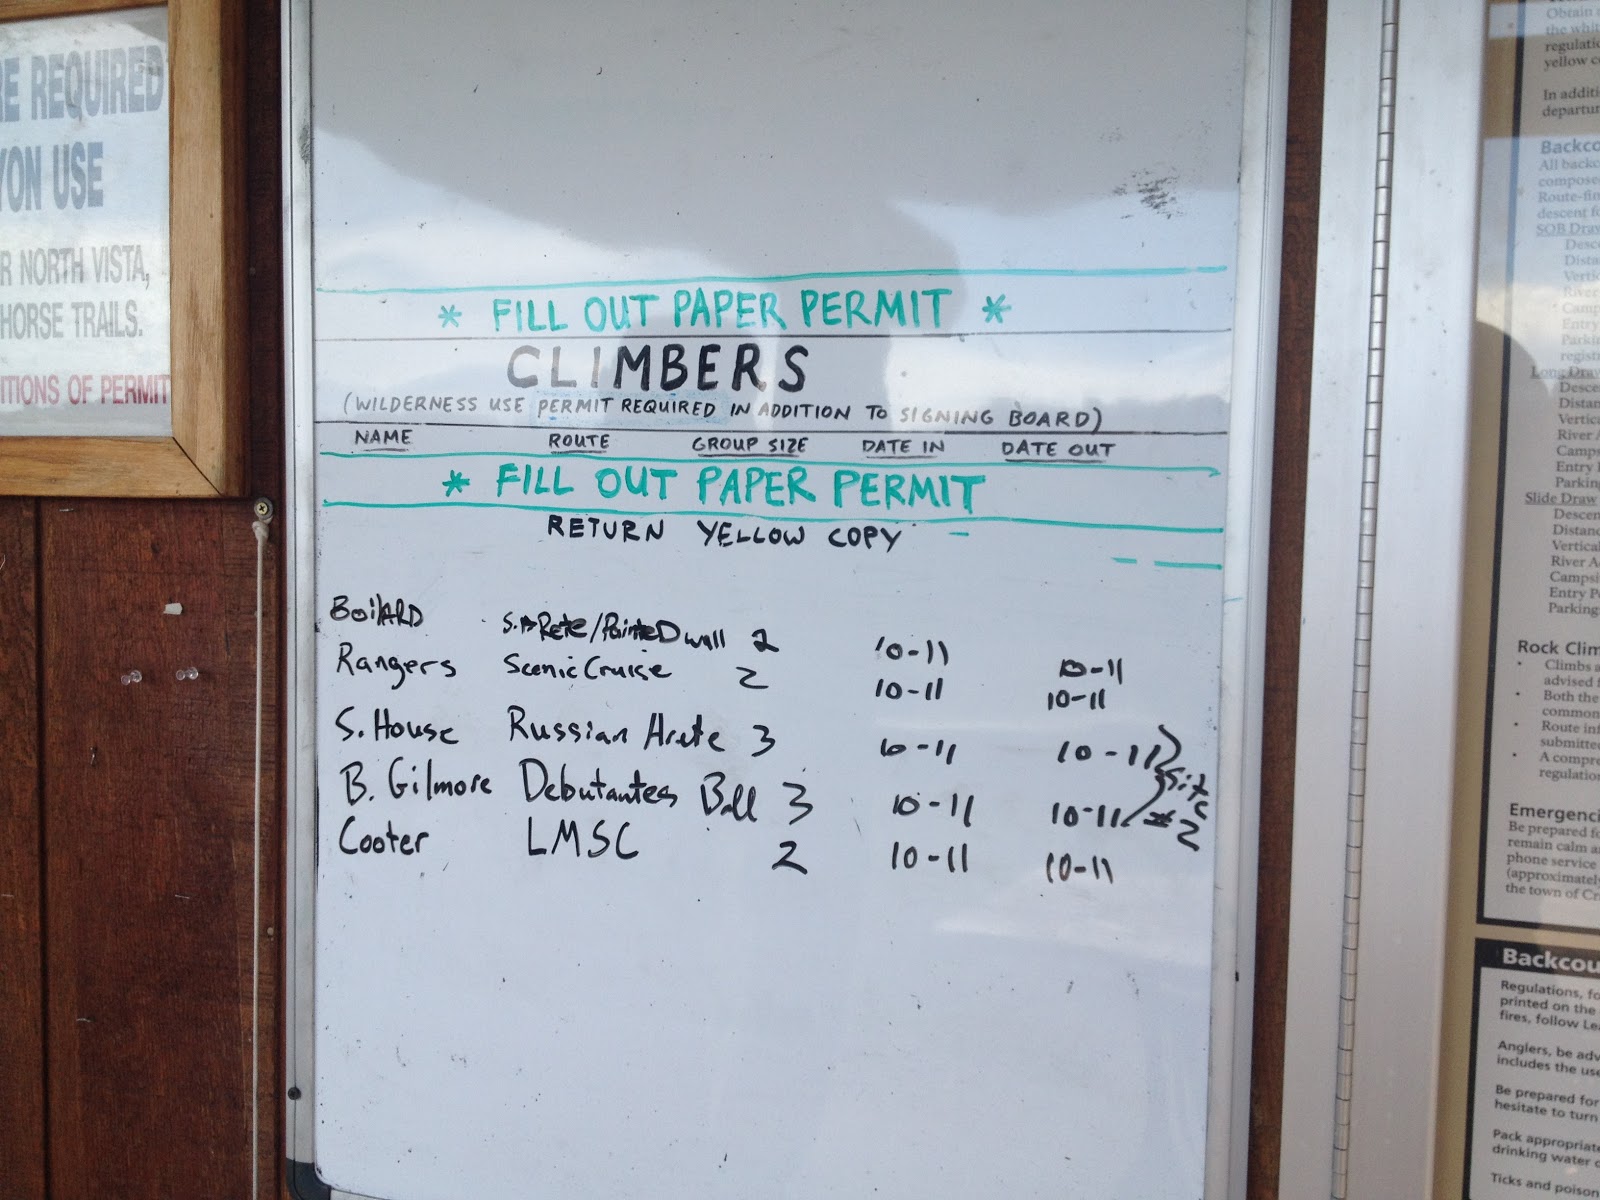 RE REQUIRED
YON USE
R NORTH VISTA,
HORSE TRAILS.
ITIONS OF PERMIT
* FILL OUT PAPER PERMIT *
CLIMBERS
(WILDERNESS USE PERMIT REQUIRED IN ADDITION TO SIGNING BOARD)
NAME ROUTE GROUP SIZE DATE IN DATE OUT
* FILL OUT PAPER PERMIT
RETURN YELLOW COPY
BoilARD S. ARete/PainteD wall 2 10-11 10-11
Rangers Scenic Cruise 2 10-11 10-11
S. House Russian Arete 3 10-11 10-11
B. Gilmore Debutantes Ball 3 10-11 10-11
Site #2
Cooter LMSC 2 10-11 10-11
Obtain
the whit
regulatio
yellow c
In additi
departur
Backco
All backc
compose
Route-fin
descent fo
SOB Draw
Desce
Dista
Vertic
River
Camp
Entry
Parkin
registr
Long Draw
Descen
Distan
Vertica
River A
Camps
Entry
Parking
Slide Draw
Descen
Distanc
Vertical
River A
Campsi
Entry Po
Parking:
Rock Clim
• Climbs a
advised f
• Both the
common
• Route inf
submitte
• A compre
regulation
Emergenci
Be prepared fo
remain calm a
phone service
(approximately
the town of Cr
Backcou
Regulations, fo
printed on the
fires, follow Le
Anglers, be adv
includes the use
Be prepared for
hesitate to turn
Pack appropriate
drinking water o
Ticks and poison